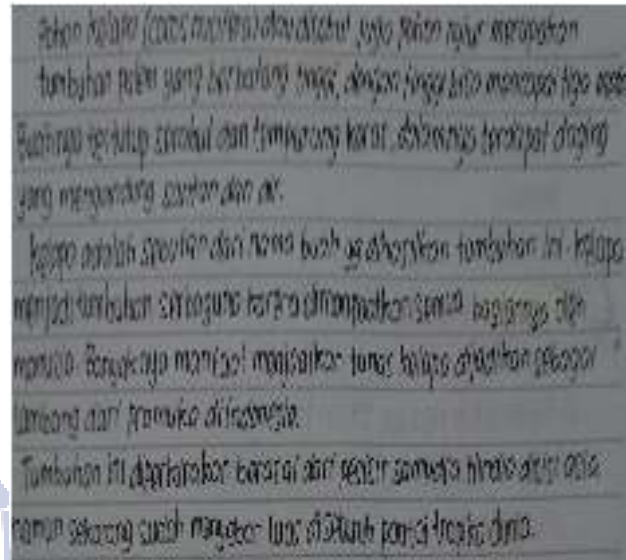 Pohon kelapa (cocos nucifera) atau disebut juga pohon nyiur merupakan
tumbuhan palem yang berbatang tinggi, dengan tinggi bisa mencapai tiga
Buahnya tertutup serabut dan tempurung keras, dalamnya terdapat daging
yang mengandung santan dan air.
Kelapa adalah sebutan dari nama buah yg dihasilkan tumbuhan ini. Kelapa
menjadi tumbuhan serbaguna karena dimanfaatkan semua bagiannya oleh
manusia. Banyaknya manfaat menjadikan tunas kelapa dijadikan sebagai
lambang dari pramuka di Indonesia.
Tumbuhan ini diperkirakan berasal dari pesisir samudra hindia disisi asia
namun sekarang sudah menyebar luas diseluruh pantai tropika dunia.